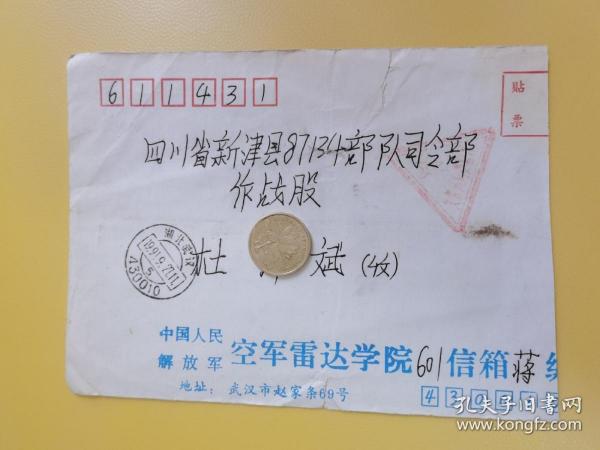 611431
貼
票
四川省新津县87134部队司令部
作战股
杜 斌(收)
湖北武汉
430010
中国人民
解放军
空军雷达学院601信箱蒋
地址:武汉市赵家条69号
430
孔夫子旧书网
www.kongfz.com